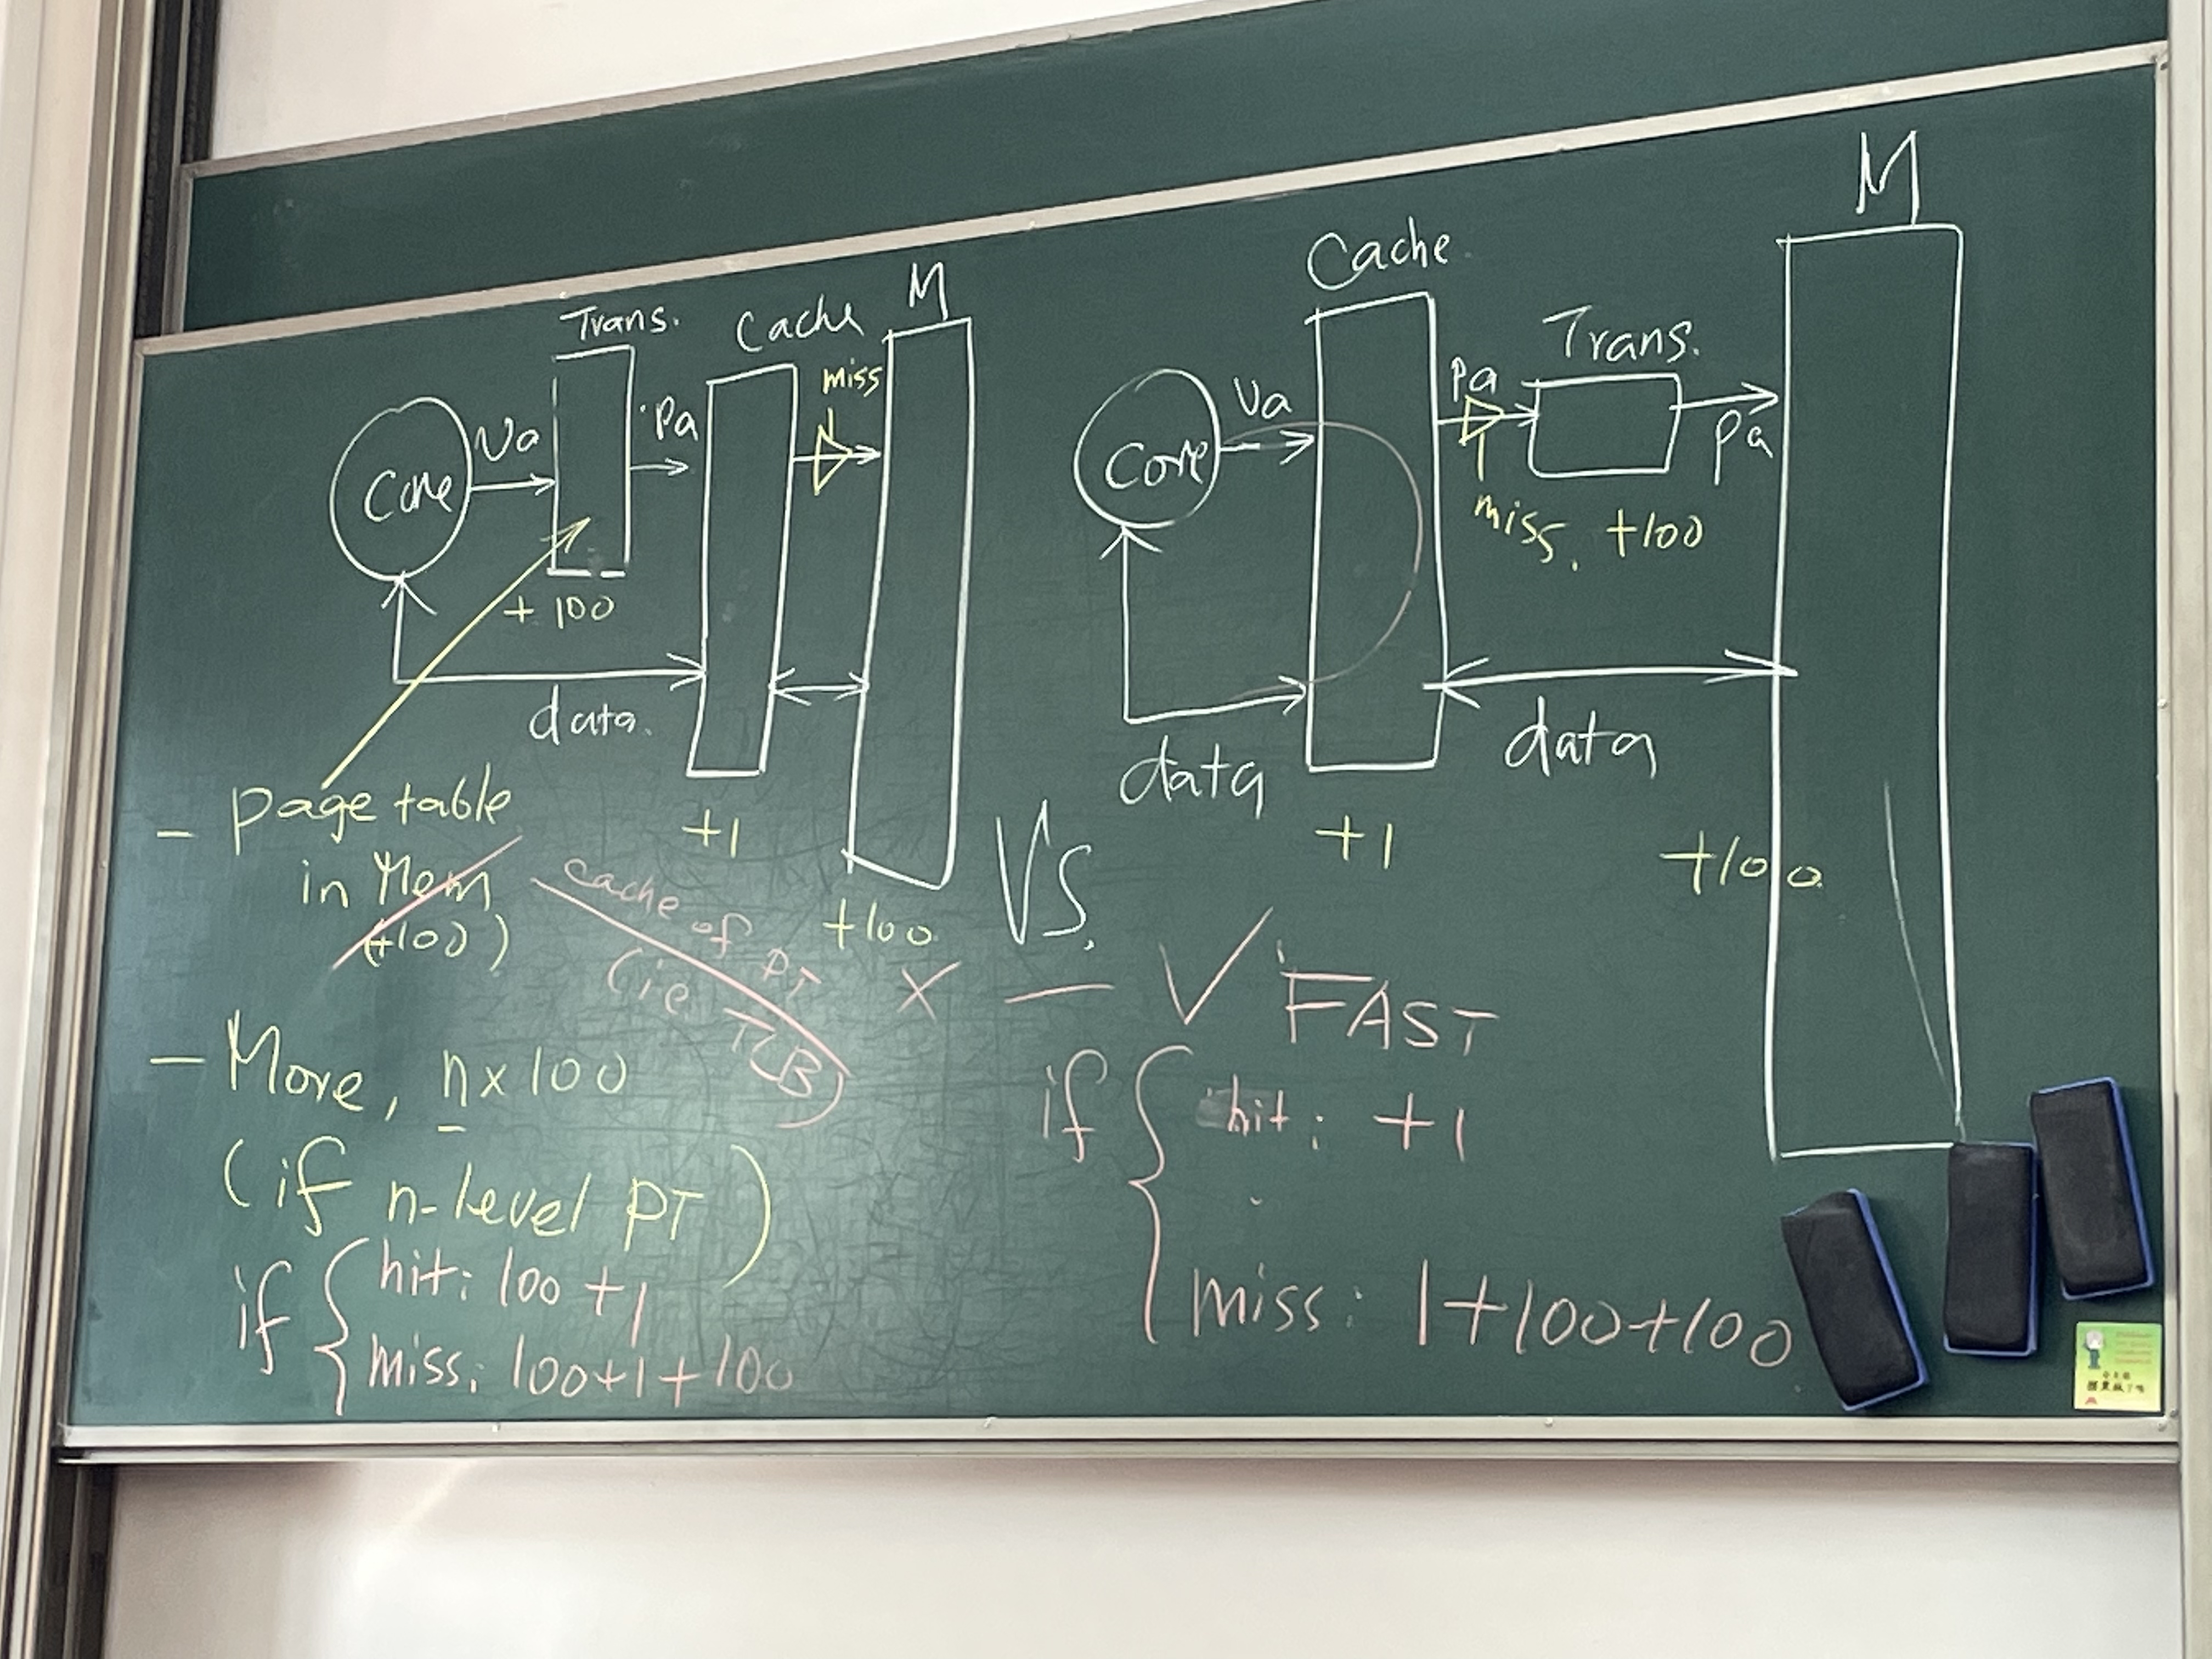 Trans.
Cache
M
miss
Va
Pa
Core
+ 100
data.
+1
+100
- page table
in Mem
(+100)
cache of PT
(ie TLB)
- More, n×100
(if n-level PT)
if { hit: 100 + 1
miss: 100+1+100
VS.
× — ✓ FAST
Cache
M
Trans.
Va
Pa
Core
Pa
miss. +100
data
data
+1
+100
if { hit: +1
miss: 1+100+100